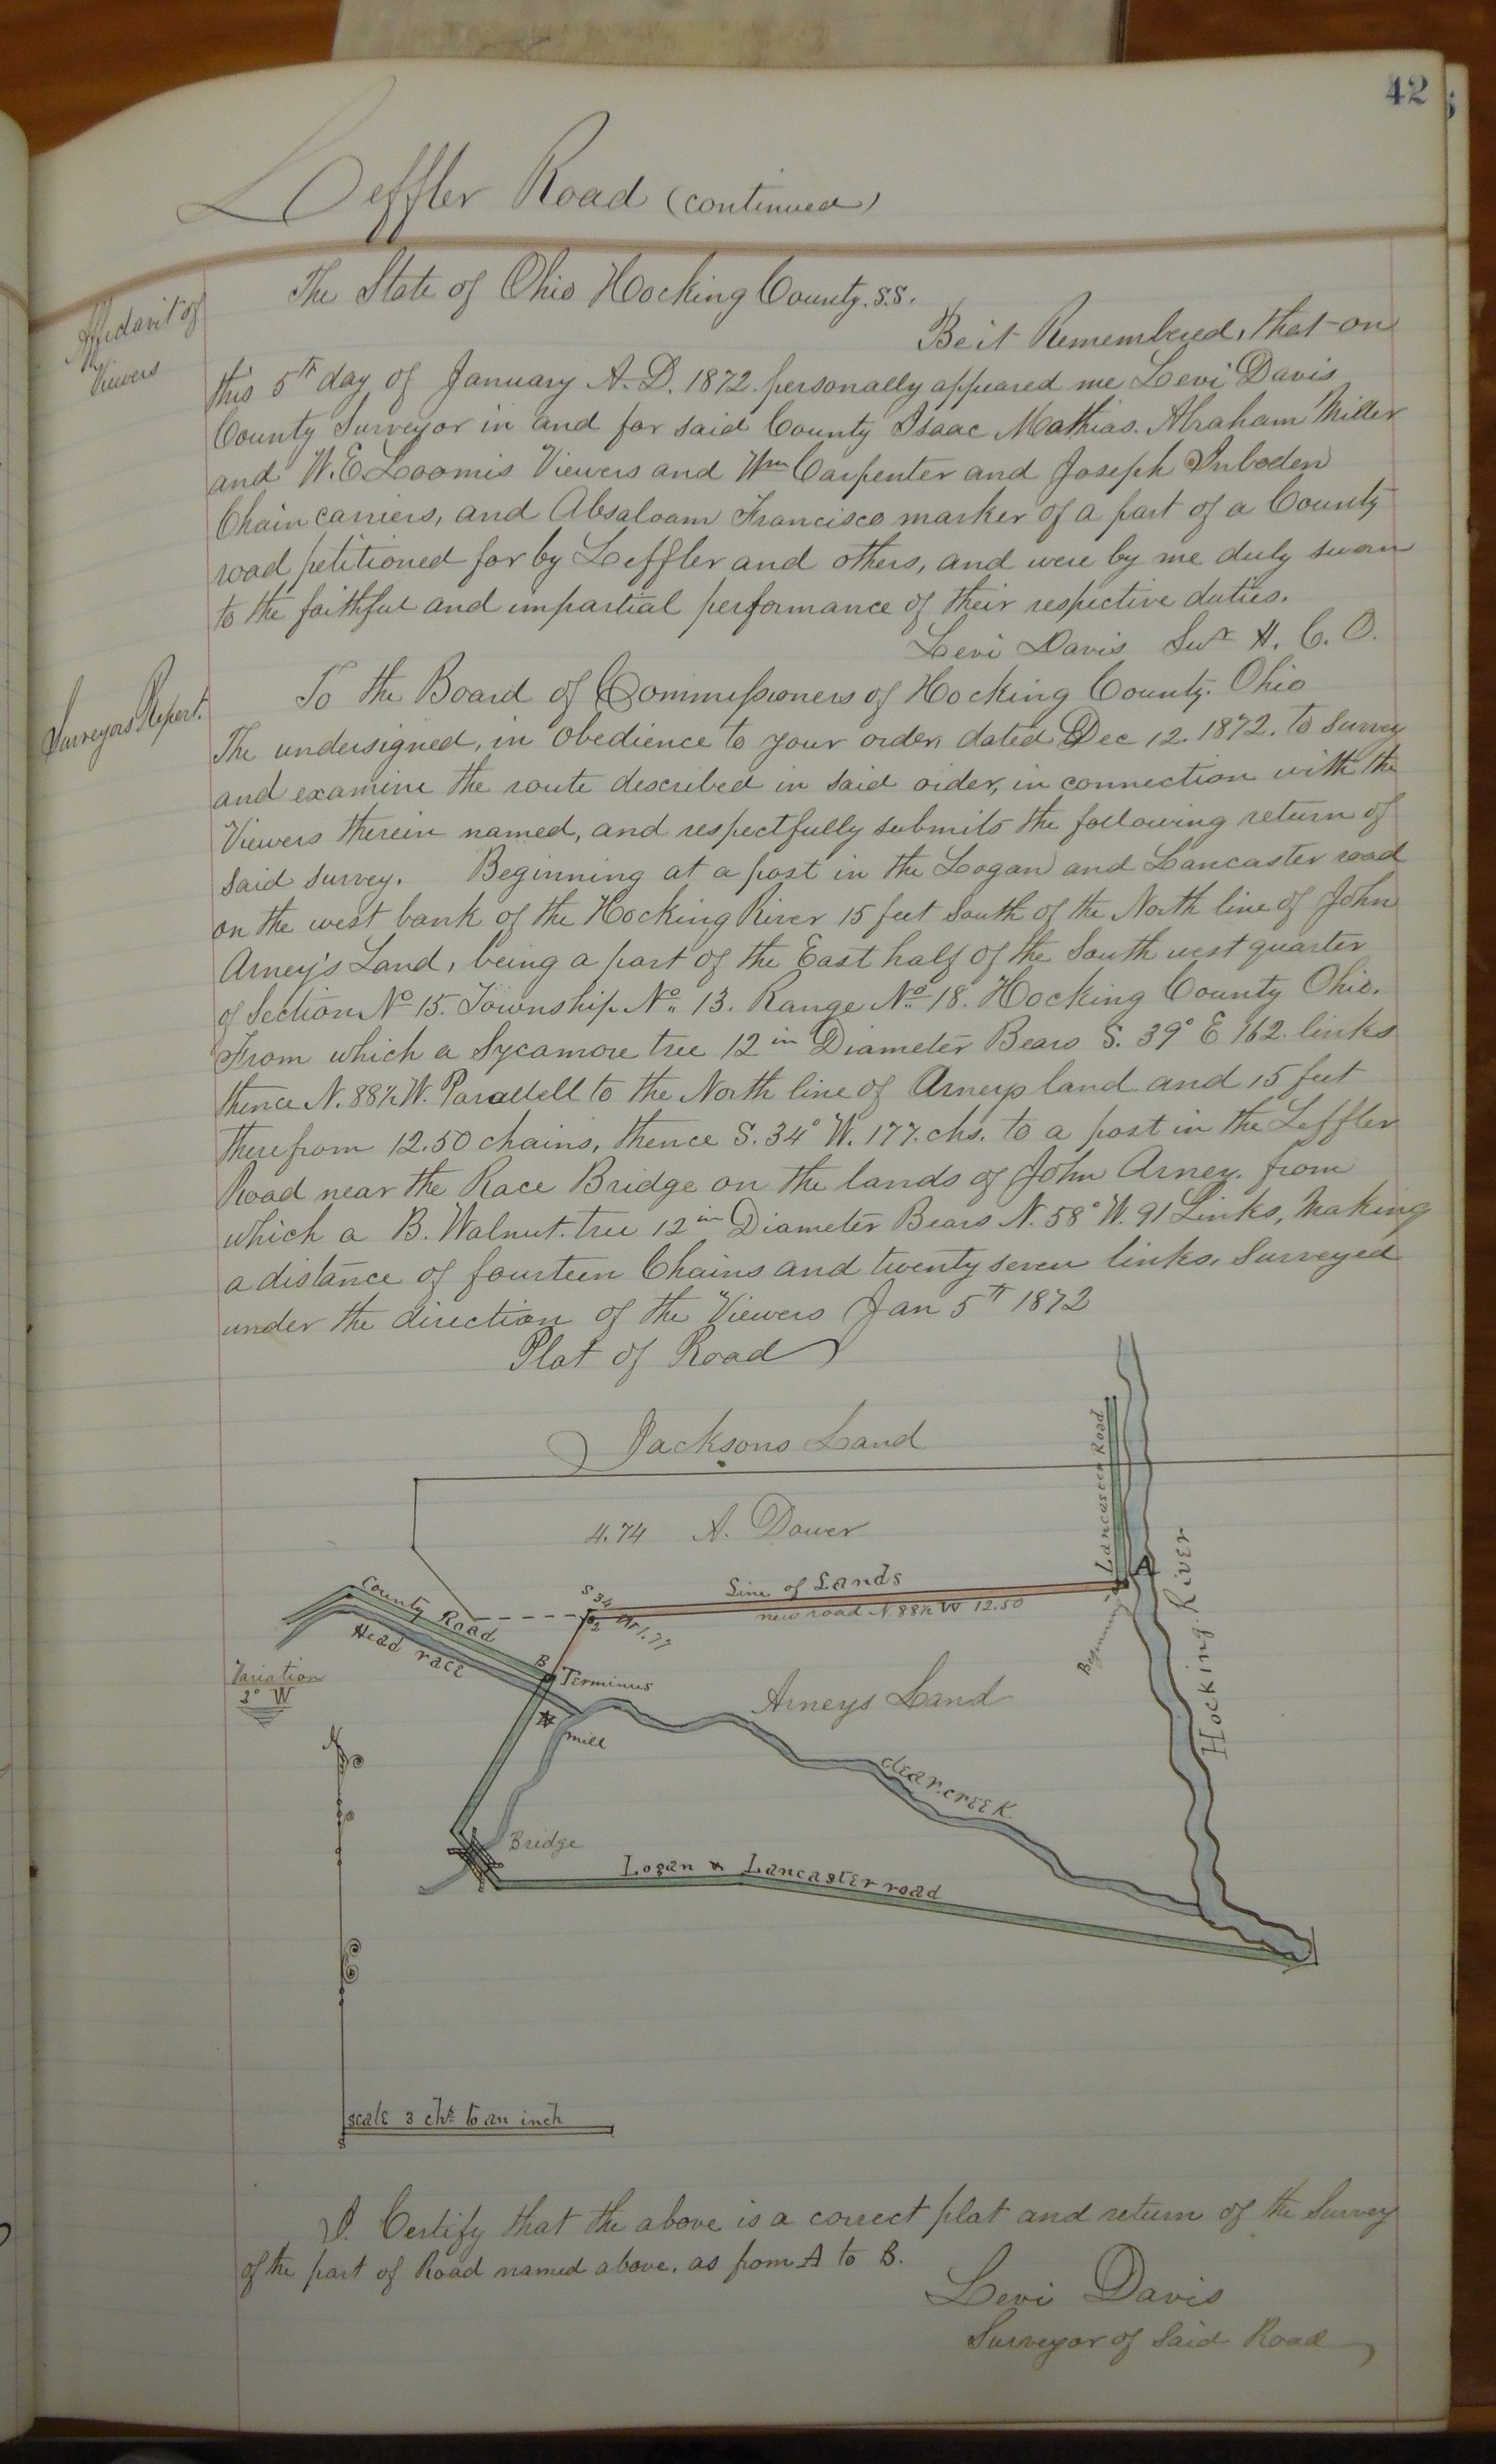 42
Leffler Road (continued)
The State of Ohio Hocking County. s.s.
Affidavit of
Viewers
Be it Remembered, that on
this 5th day of January A. D. 1872 personally appeared me Levi Davis
County Surveyor in and for said County Isaac Mathias. Abraham Miller
and W. E. Loomis Viewers and Wm Carpenter and Joseph Inboden
Chain carriers, and Absaloam Francisco marker of a part of a County
road petitioned for by Leffler and others, and were by me duly sworn
to the faithful and impartial performance of their respective duties.
Levi Davis Sur H. C. O.
Surveyors Report.
To the Board of Commissioners of Hocking County. Ohio
The undersigned, in obedience to your order, dated Dec 12. 1872. to survey
and examine the route described in said order, in connection with the
Viewers therein named, and respectfully submits the following return of
said survey. Beginning at a post in the Logan and Lancaster road
on the west bank of the Hocking River 15 feet South of the North line of John
Arney's Land, being a part of the East half of the South west quarter
of Section No 15. Township No. 13. Range No 18. Hocking County Ohio.
From which a Sycamore tree 12 in Diameter Bears S. 39° E 162. links
thence N. 88½ W. Paralell to the North line of Arneys land and 15 feet
therefrom 12.50 chains, thence S. 34° W. 177. chs. to a post in the Leffler
Road near the Race Bridge on the lands of John Arney. from
which a B. Walnut. tree 12 in Diameter Bears N. 58° W. 91 Links, Making
a distance of fourteen Chains and twenty seven links. Surveyed
under the direction of the Viewers Jan 5th 1872
Plat of Road
Jacksons Land
Lancaster Road
4.74 A. Dower
A
Line of Lands
new road N. 88½ W 12.50
S 34 W 1.77
Beginning
Hocking River
County Road
Head race
B
Terminus
Variation
3° W
Arneys Land
mill
clear creek
Bridge
Logan & Lancaster road
scale 3 chs to an inch
S
I. Certify that the above is a correct plat and return of the Survey
of the part of Road named above. as from A to B.
Levi Davis
Surveyor of Said Road